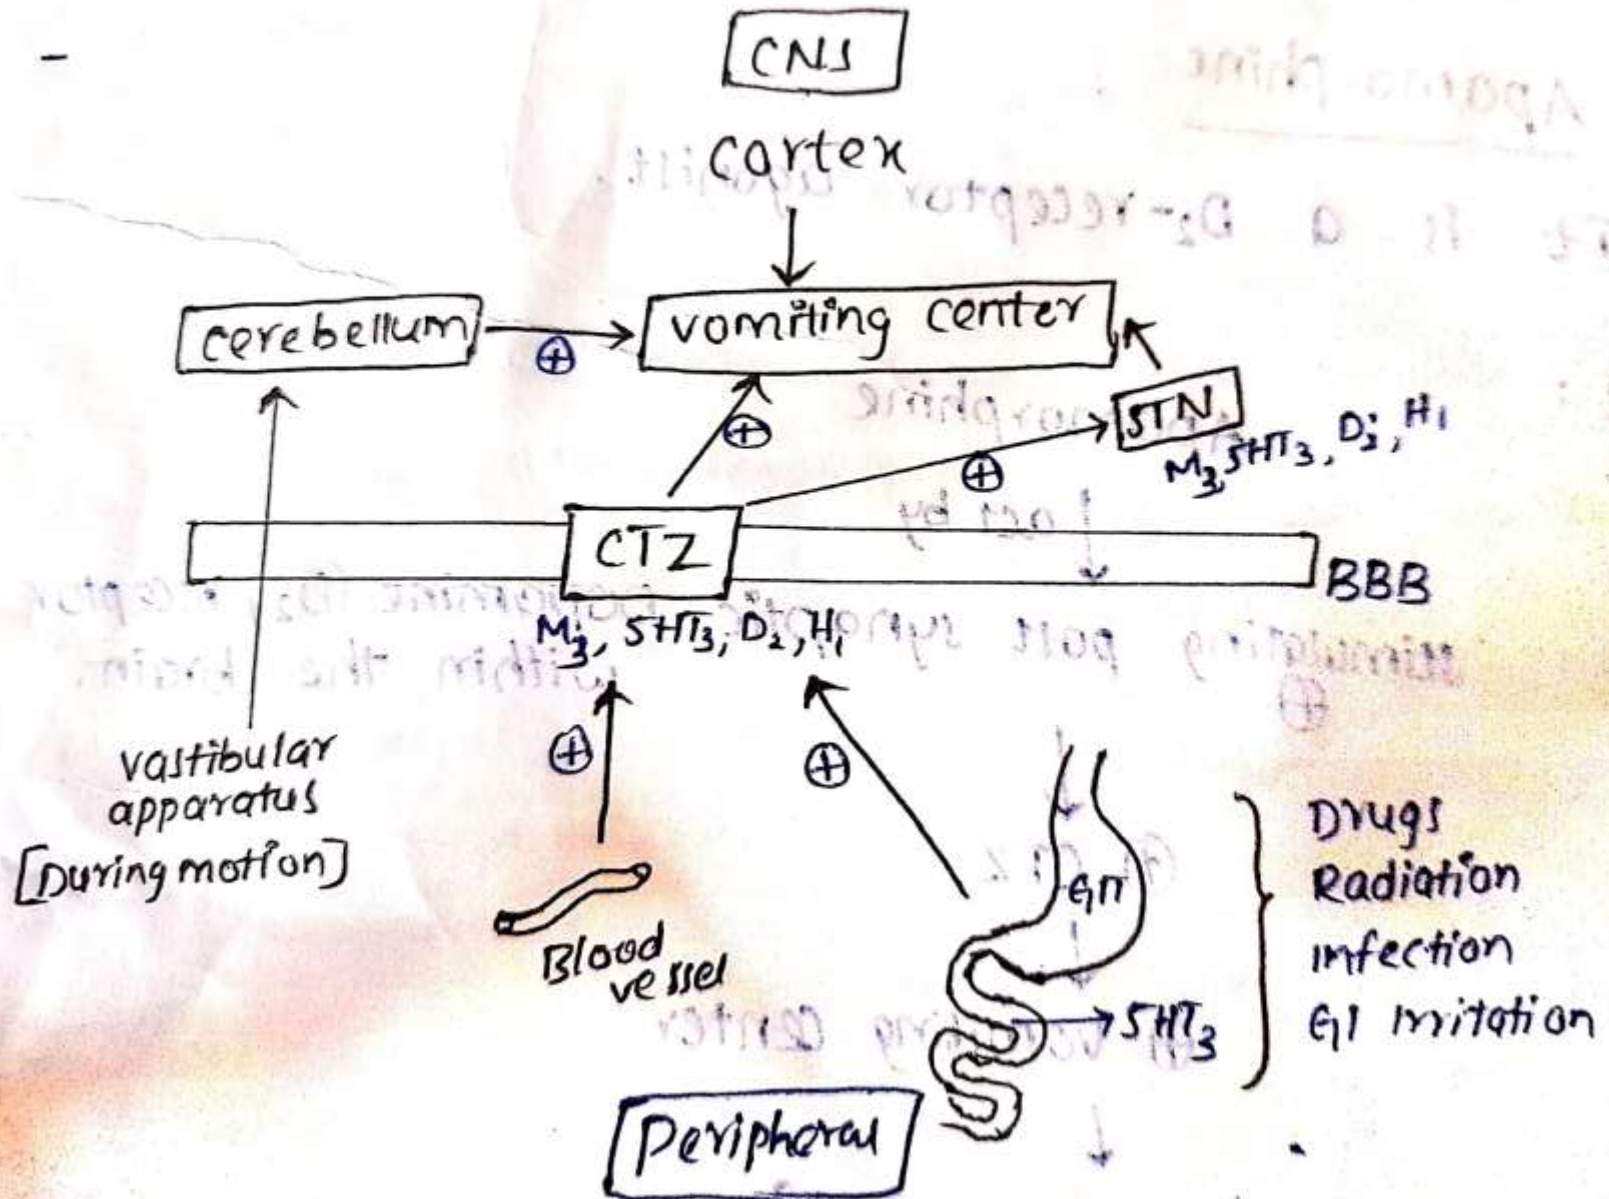 CNS
Cortex
cerebellum
vomiting center
⊕
⊕
STN
M3, 5HT3, D2, H1
⊕
CTZ
BBB
M3, 5HT3, D2, H1
⊕
⊕
vastibular
apparatus
[During motion]
Blood
vessel
GIT
5HT3
Drugs
Radiation
infection
GI irritation
Peripheral